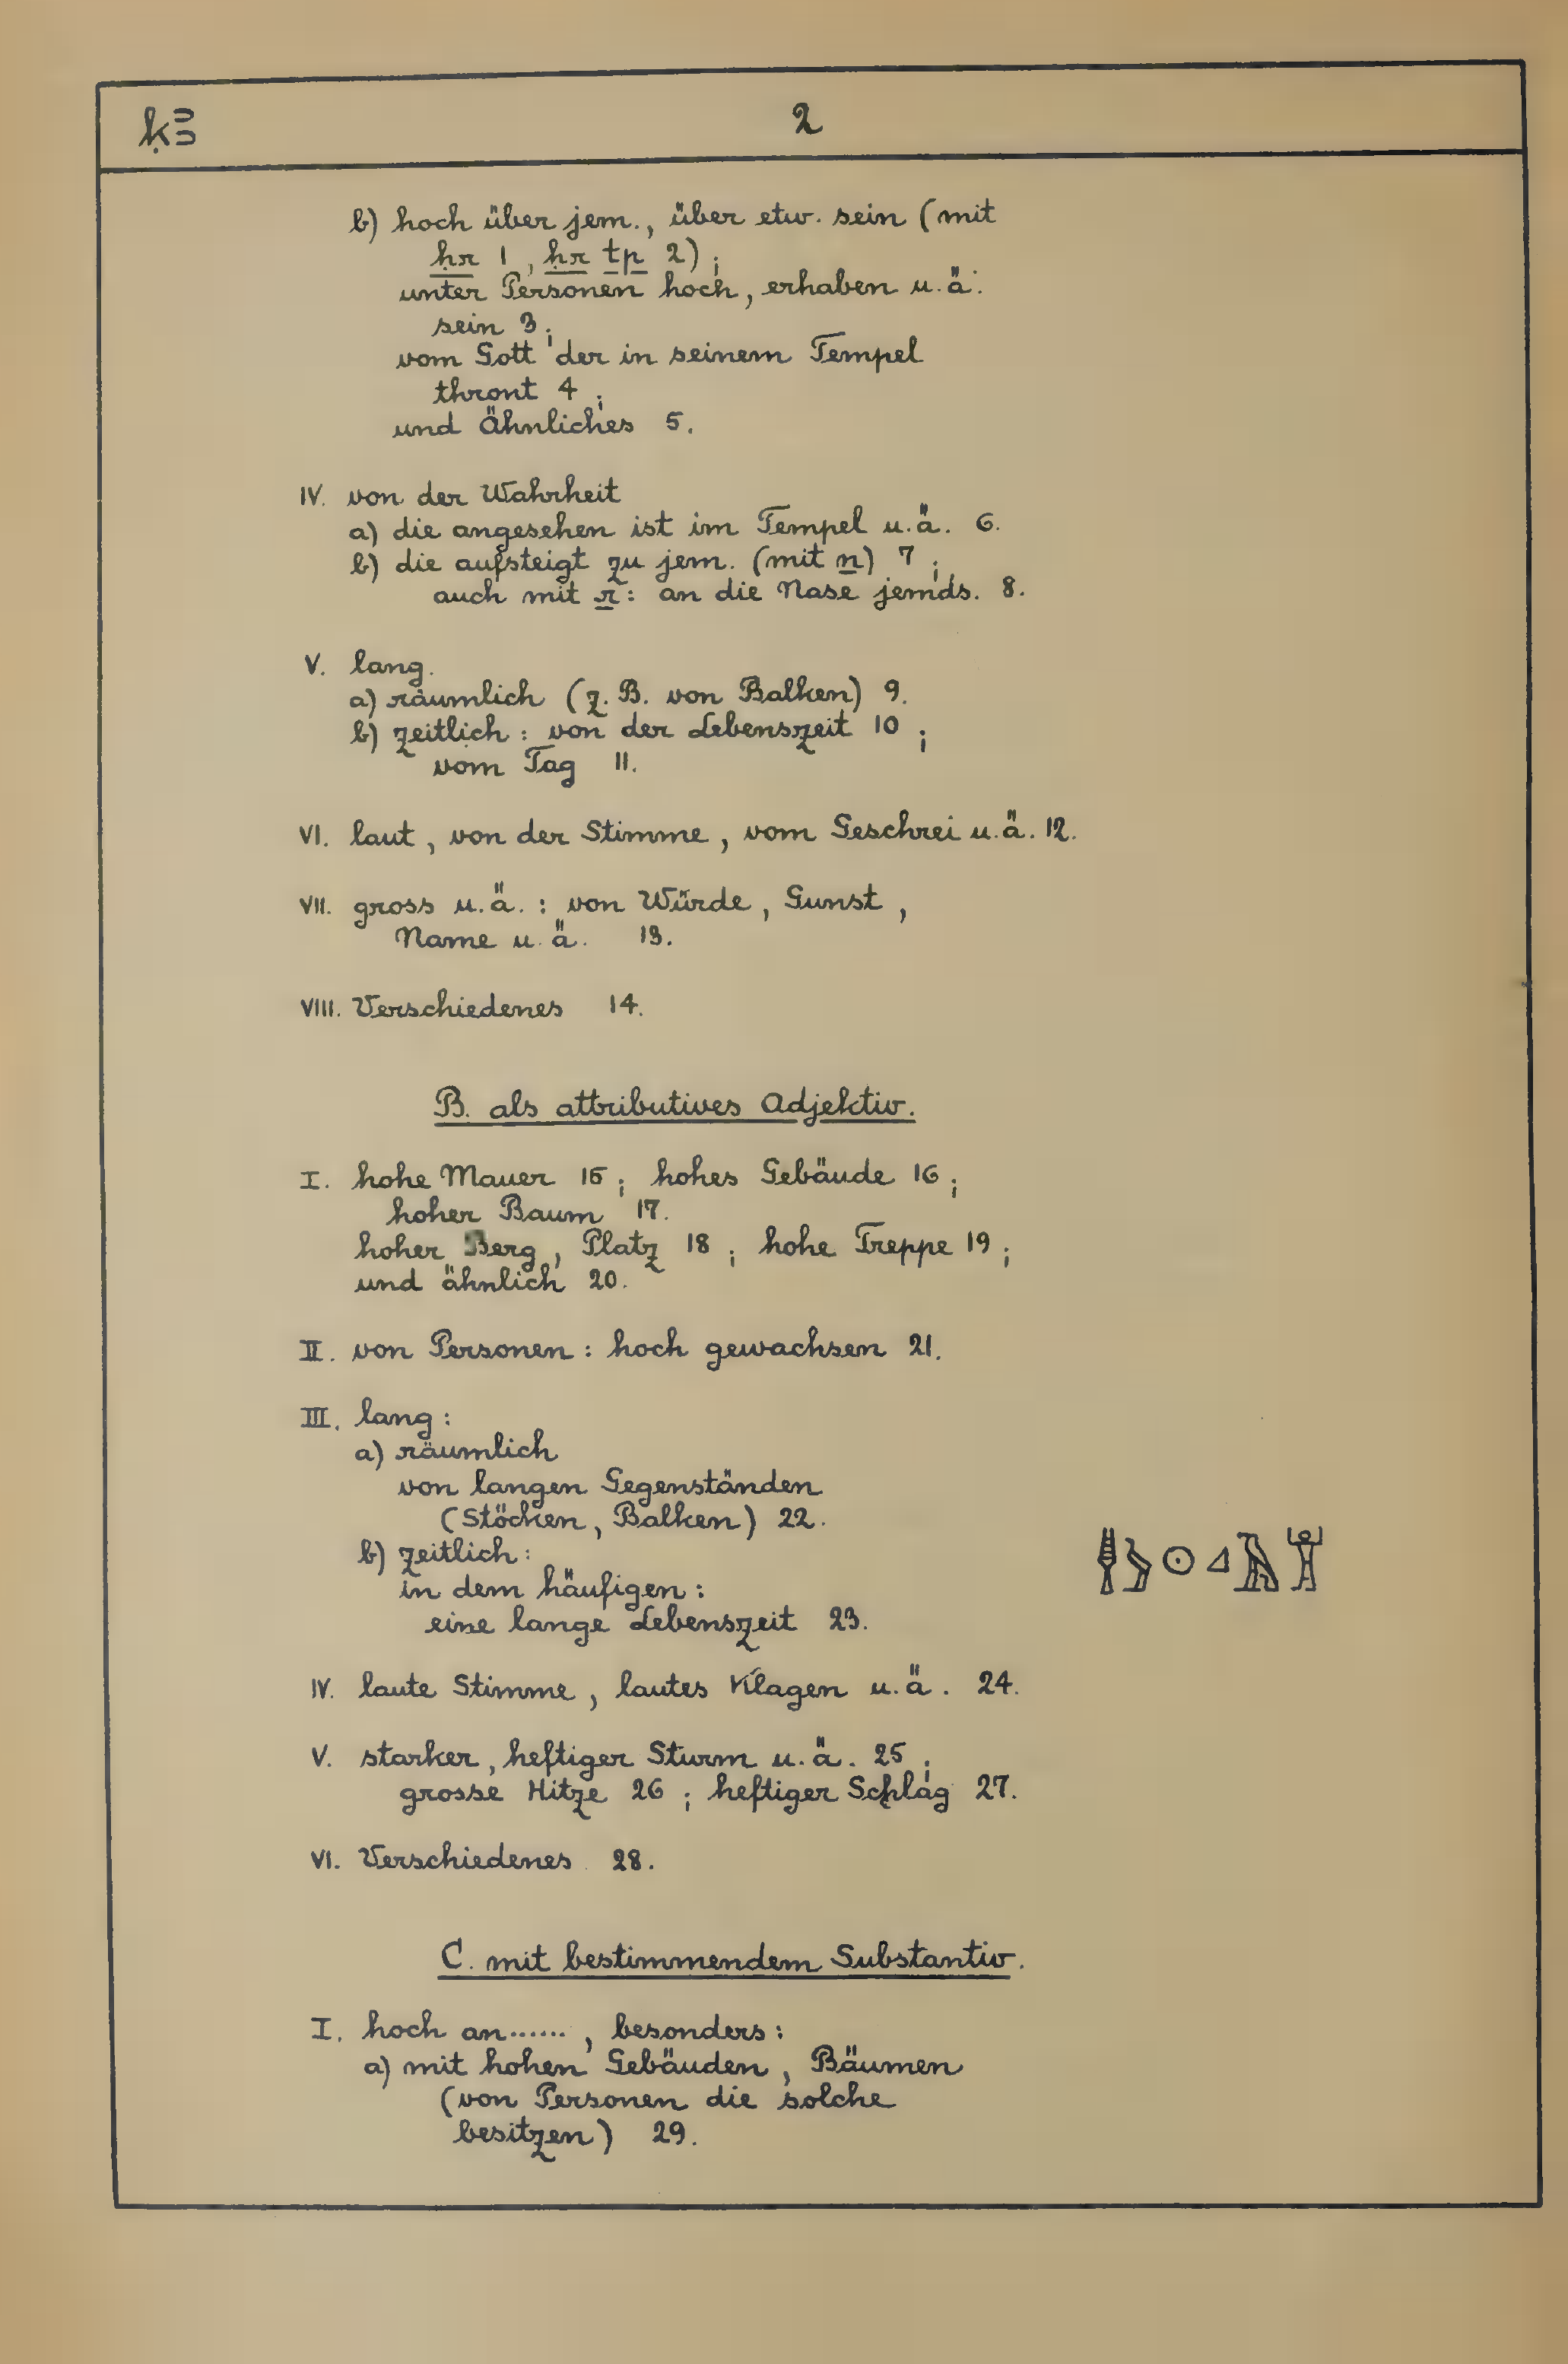 ḳꜣ
2
b) hoch über jem., über etw. sein (mit
ḥr 1, ḥr tp 2);
unter Personen hoch, erhaben u.ä.
sein 3;
vom Gott der in seinem Tempel
thront 4;
und Ähnliches 5.
IV. von der Wahrheit
a) die angesehen ist im Tempel u.ä. 6.
b) die aufsteigt zu jem. (mit n) 7;
auch mit r: an die Nase jemds. 8.
V. lang.
a) räumlich (z.B. von Balken) 9.
b) zeitlich: von der Lebenszeit 10;
vom Tag 11.
VI. laut, von der Stimme, vom Geschrei u.ä. 12.
VII. gross u.ä.: von Würde, Gunst,
Name u.ä. 13.
VIII. Verschiedenes 14.
B. als attributives Adjektiv.
I. hohe Mauer 15; hohes Gebäude 16;
hoher Baum 17.
hoher Berg, Platz 18; hohe Treppe 19;
und ähnlich 20.
II. von Personen: hoch gewachsen 21.
III. lang:
a) räumlich
von langen Gegenständen
(Stöcken, Balken) 22.
b) zeitlich:
in dem häufigen:
eine lange Lebenszeit 23.
IV. laute Stimme, lautes Klagen u.ä. 24.
V. starker, heftiger Sturm u.ä. 25;
grosse Hitze 26; heftiger Schlag 27.
VI. Verschiedenes 28.
C. mit bestimmendem Substantiv.
I. hoch an......, besonders:
a) mit hohen Gebäuden, Bäumen
(von Personen die solche
besitzen) 29.